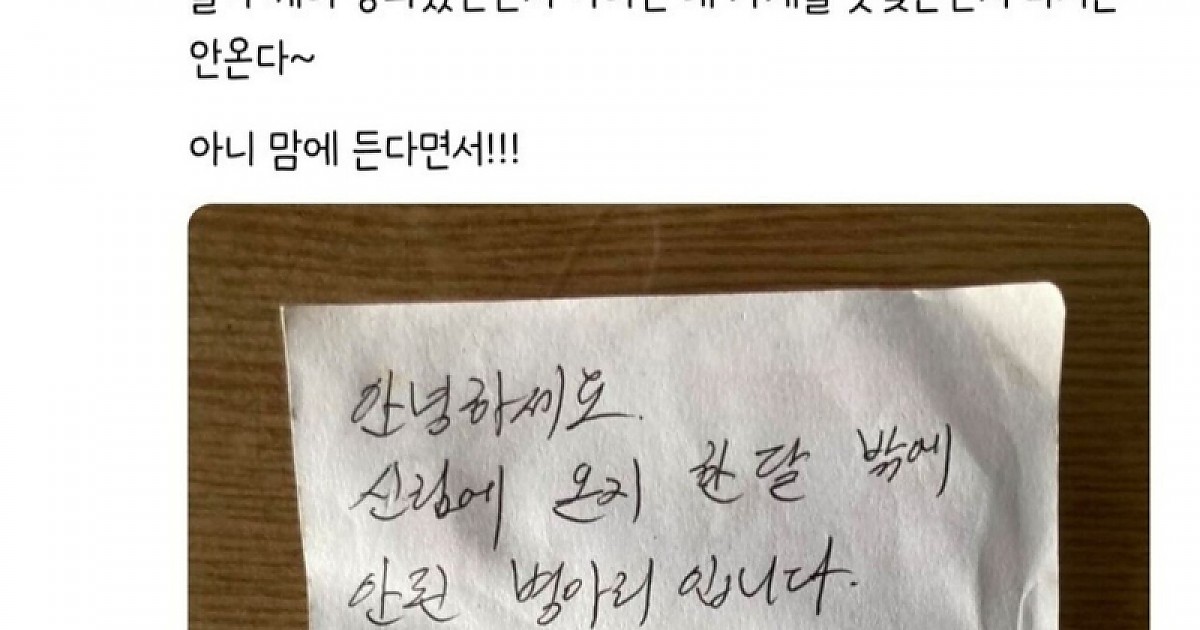 안온다~
아니 맘에 든다면서!!!
안녕하세요.
신림에 온지 한달 밖에
안된 병아리 입니다.